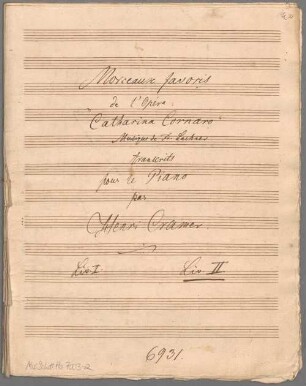 Morceaux favoris
de l'Opéra
Catharina Cornaro
Musique de Fr. Lachner
transcrits
pour le Piano
par
Henri Cramer
Liv I Liv II
6931